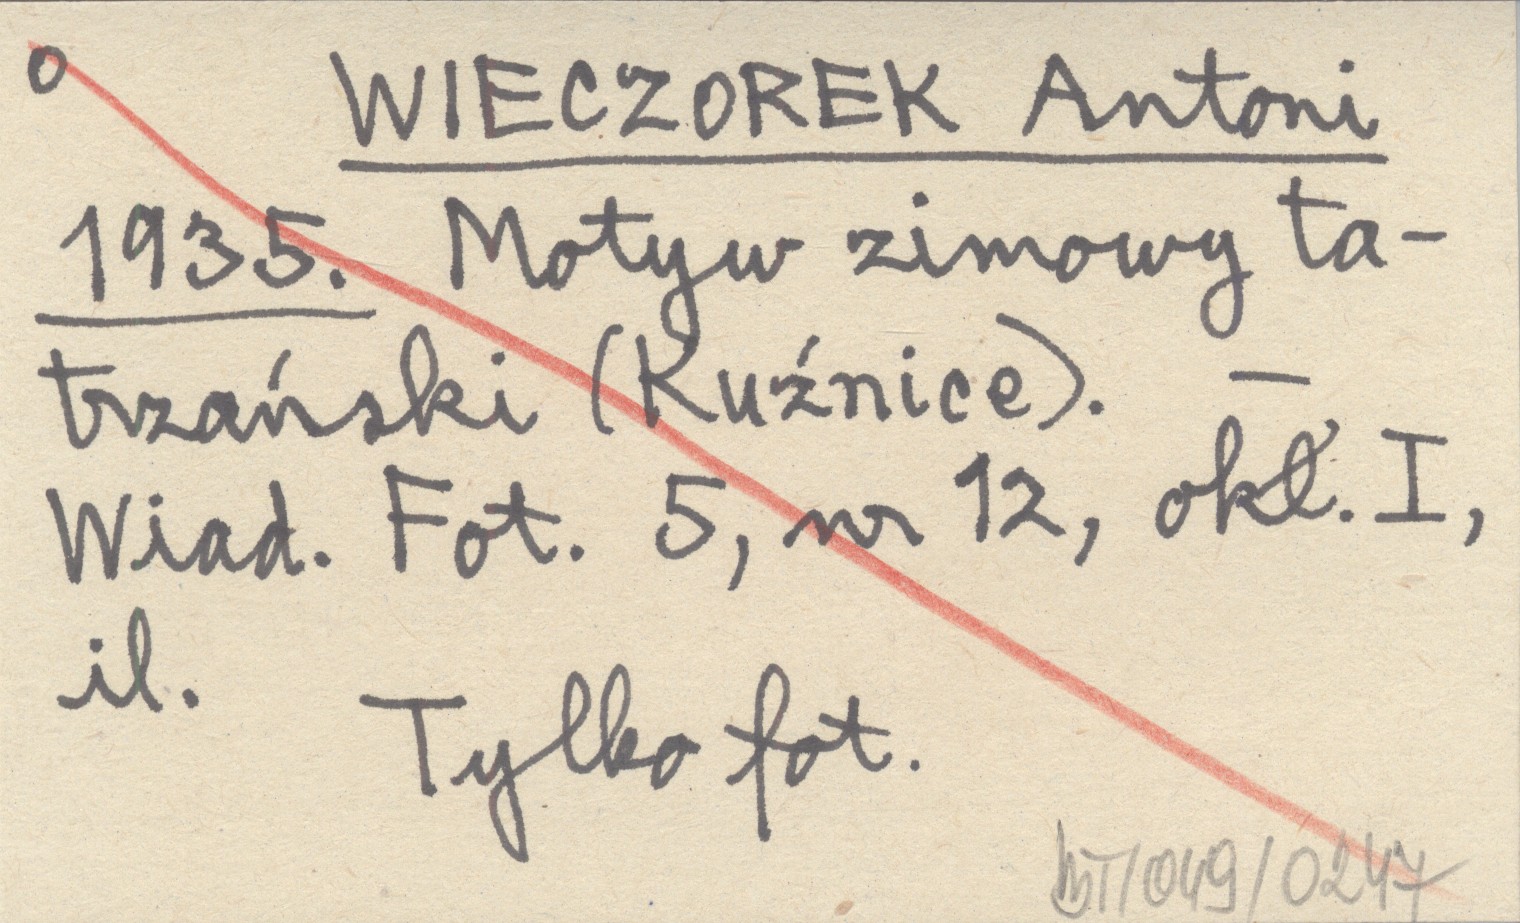 o WIECZOREK Antoni
1935. Motyw zimowy ta-
trzański (Kuźnice). —
Wiad. Fot. 5, nr 12, okł. I,
il. Tylko fot.
/049/0247